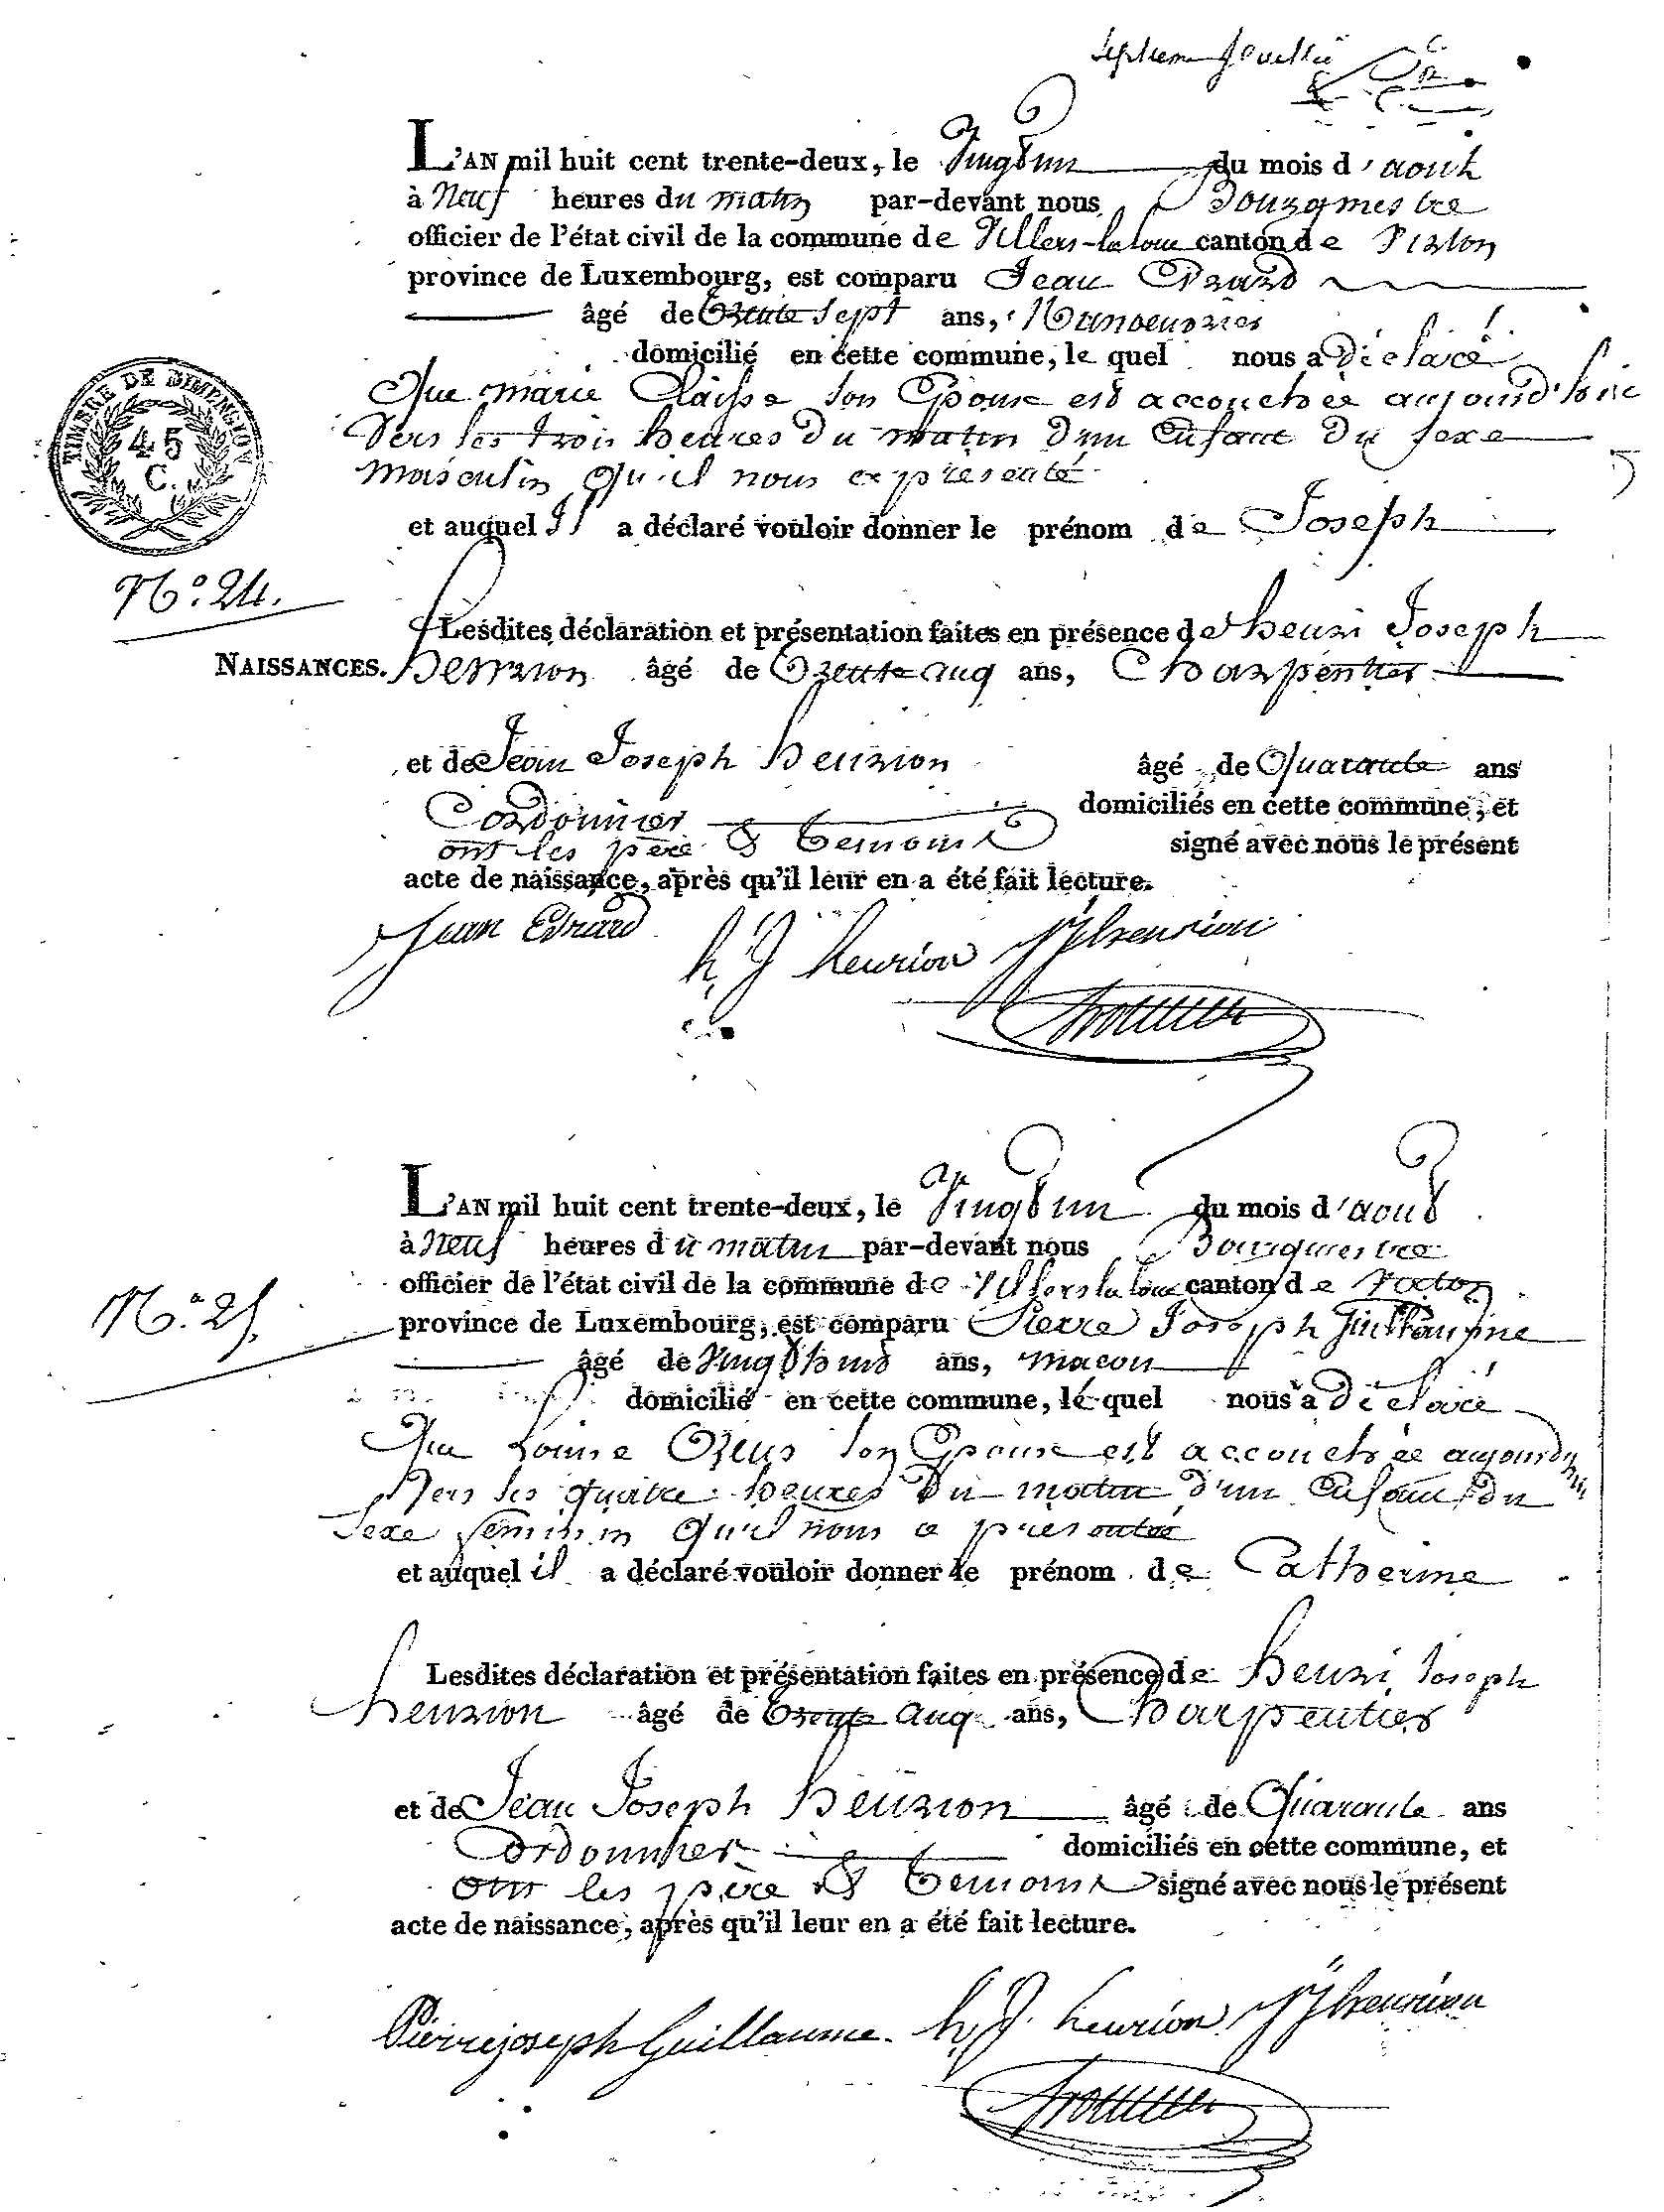 septieme feuillet
L'AN mil huit cent trente-deux, le Vingt un du mois d'aout
à Neuf heures du matin par-devant nous Bourgmestre
officier de l'état civil de la commune de Villers-la loue canton de Virton
province de Luxembourg, est comparu Jean Evrard
âgé de trente sept ans, Manoeuvrier
domicilié en cette commune, le quel nous a déclaré
Que marie Claisse son Epouse est accouchée aujourd'hui
Vers les trois heures du matin d'un Enfant du sexe
masculin qu'il nous a présenté
et auquel Il a déclaré vouloir donner le prénom de Joseph
TIMBRE DE DIMENSION
45
C.
N.o 24.
Lesdites déclaration et présentation faites en présence de henri Joseph
NAISSANCES. henrion âgé de trente cinq ans, Charpentier
et de Jean Joseph henrion âgé de Quarante ans
Cordonnier domiciliés en cette commune, et
ont les père & temoins signé avec nous le présent
acte de naissance, après qu'il leur en a été fait lecture.
Jean Evrard h J henrion JJ henrion
L'AN mil huit cent trente-deux, le Vingt un du mois d'aout
à Neuf heures du matin par-devant nous Bourgmestre
officier de l'état civil de la commune de Villers la loue canton de Virton
N.o 25.
province de Luxembourg, est comparu Pierre Joseph Guillaume
âgé de Vingt huit ans, macon
domicilié en cette commune, le quel nous a déclaré
Que Louise son Epouse est accouchée aujourdhui
Vers les quatre heures du matin d'un Enfant du
sexe feminin qu'il nous a présenté
et auquel il a déclaré vouloir donner le prénom de Catherine
Lesdites déclaration et présentation faites en présence de henri Joseph
henrion âgé de trente cinq ans, Charpentier
et de Jean Joseph henrion âgé de Quarante ans
Cordonnier domiciliés en cette commune, et
ont les père & temoins signé avec nous le présent
acte de naissance, après qu'il leur en a été fait lecture.
Pierre joseph Guillaume. h J. henrion JJ henrion